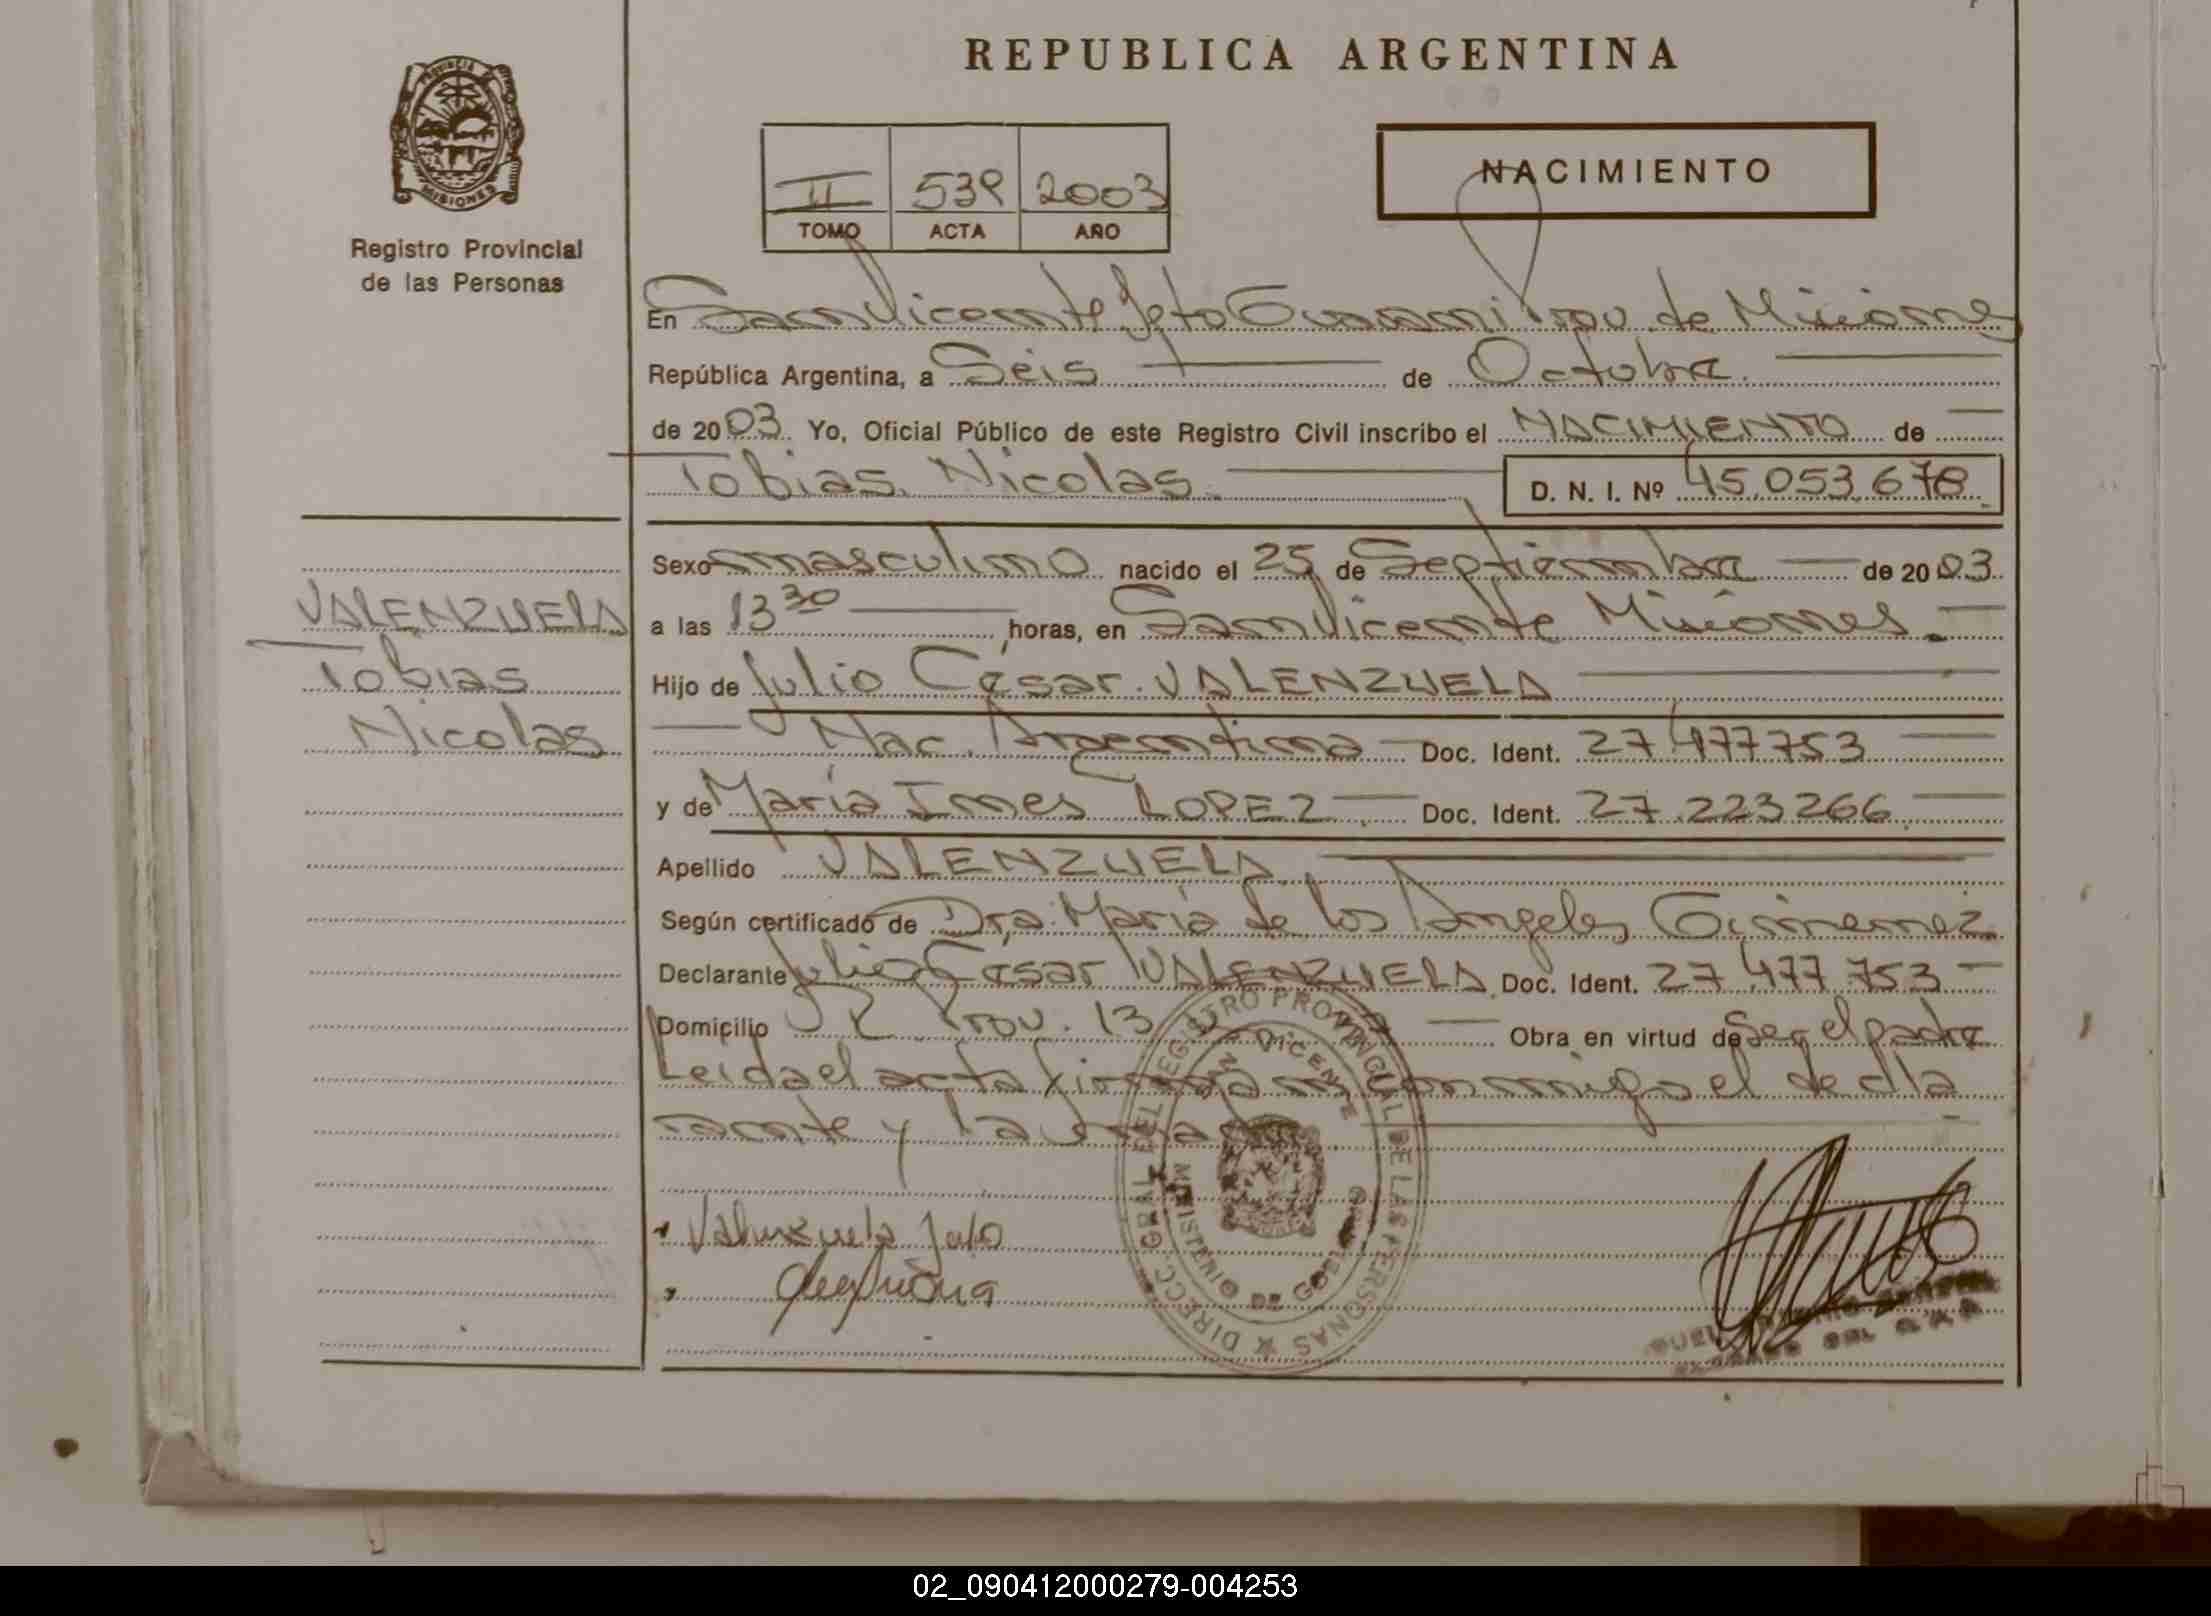 REPUBLICA ARGENTINA
PROVINCIA DE
MISIONES
Registro Provincial
de las Personas
NACIMIENTO
II 539 2003
TOMO ACTA AÑO
En San Vicente Dpto Guarani Prov. de Misiones
República Argentina, a Seis de Octubre
de 2003. Yo, Oficial Público de este Registro Civil inscribo el NACIMIENTO de
Tobias Nicolas D. N. I. Nº 45.053.678
Sexo masculino nacido el 25 de Septiembre de 2003
VALENZUELA
Tobias
Nicolas
a las 13 30 horas, en San Vicente Misiones.
Hijo de Julio César VALENZUELA
Nac. Argentina Doc. Ident. 27.477753
y de María Ines LOPEZ Doc. Ident. 27.223266
Apellido VALENZUELA
Según certificado de Dra. María de los Angeles Gimenez
Declarante Julio Cesar VALENZUELA Doc. Ident. 27.477.753
Domicilio Prov. 13 Obra en virtud de Ser el padre
Leida el acta firman conmigo el decla
rante y la
Valenzuela Julio
DIRECC. GRAL. DEL REGISTRO PROVINCIAL DE LAS PERSONAS
SAN VICENTE
MINISTERIO DE GOBIERNO
02_090412000279-004253